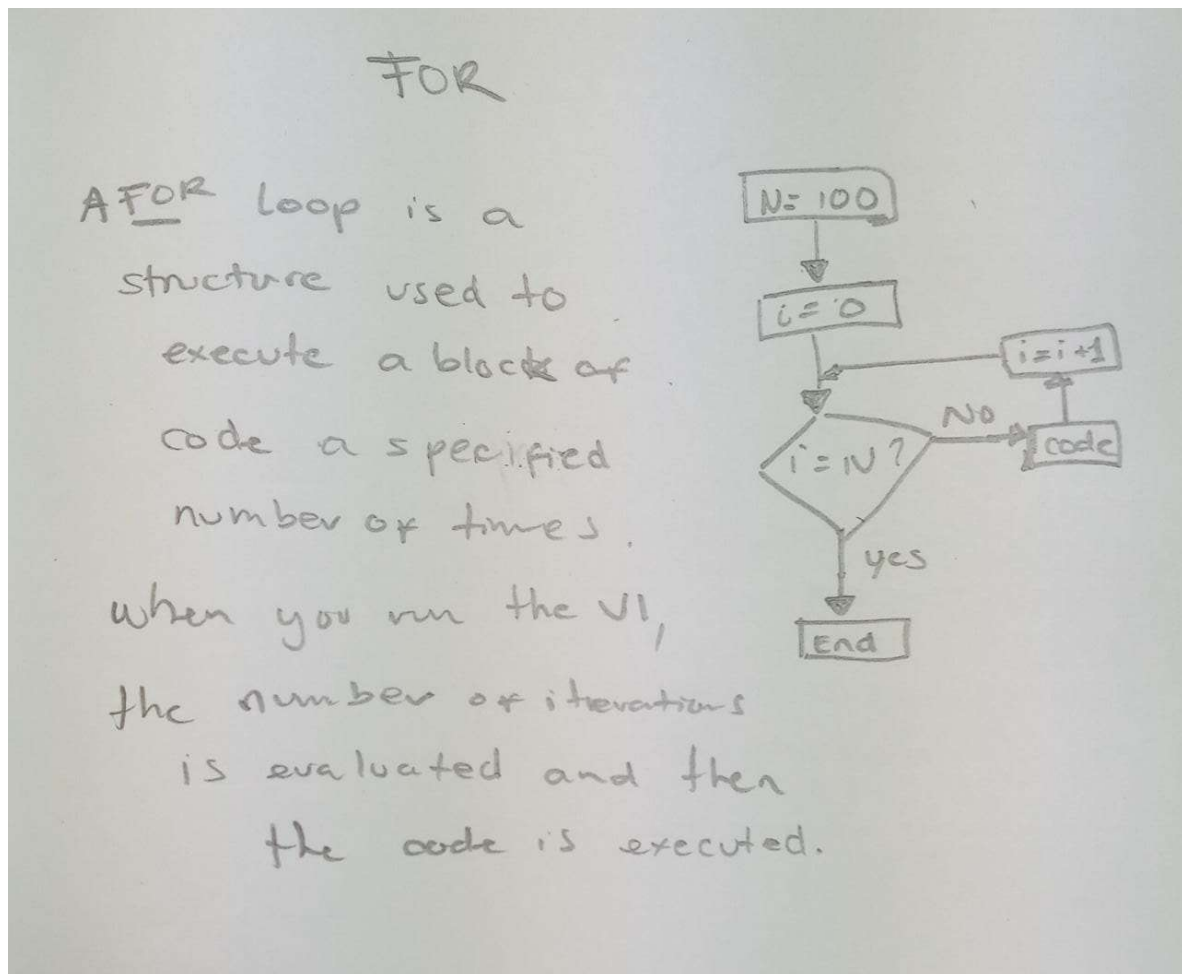 FOR
A FOR loop is a
structure used to
execute a block of
code a specified
number of times.
when you run the VI,
the number of iterations
is evaluated and then
the code is executed.
N= 100
i = 0
i=i+1
NO
code
i=N?
yes
End